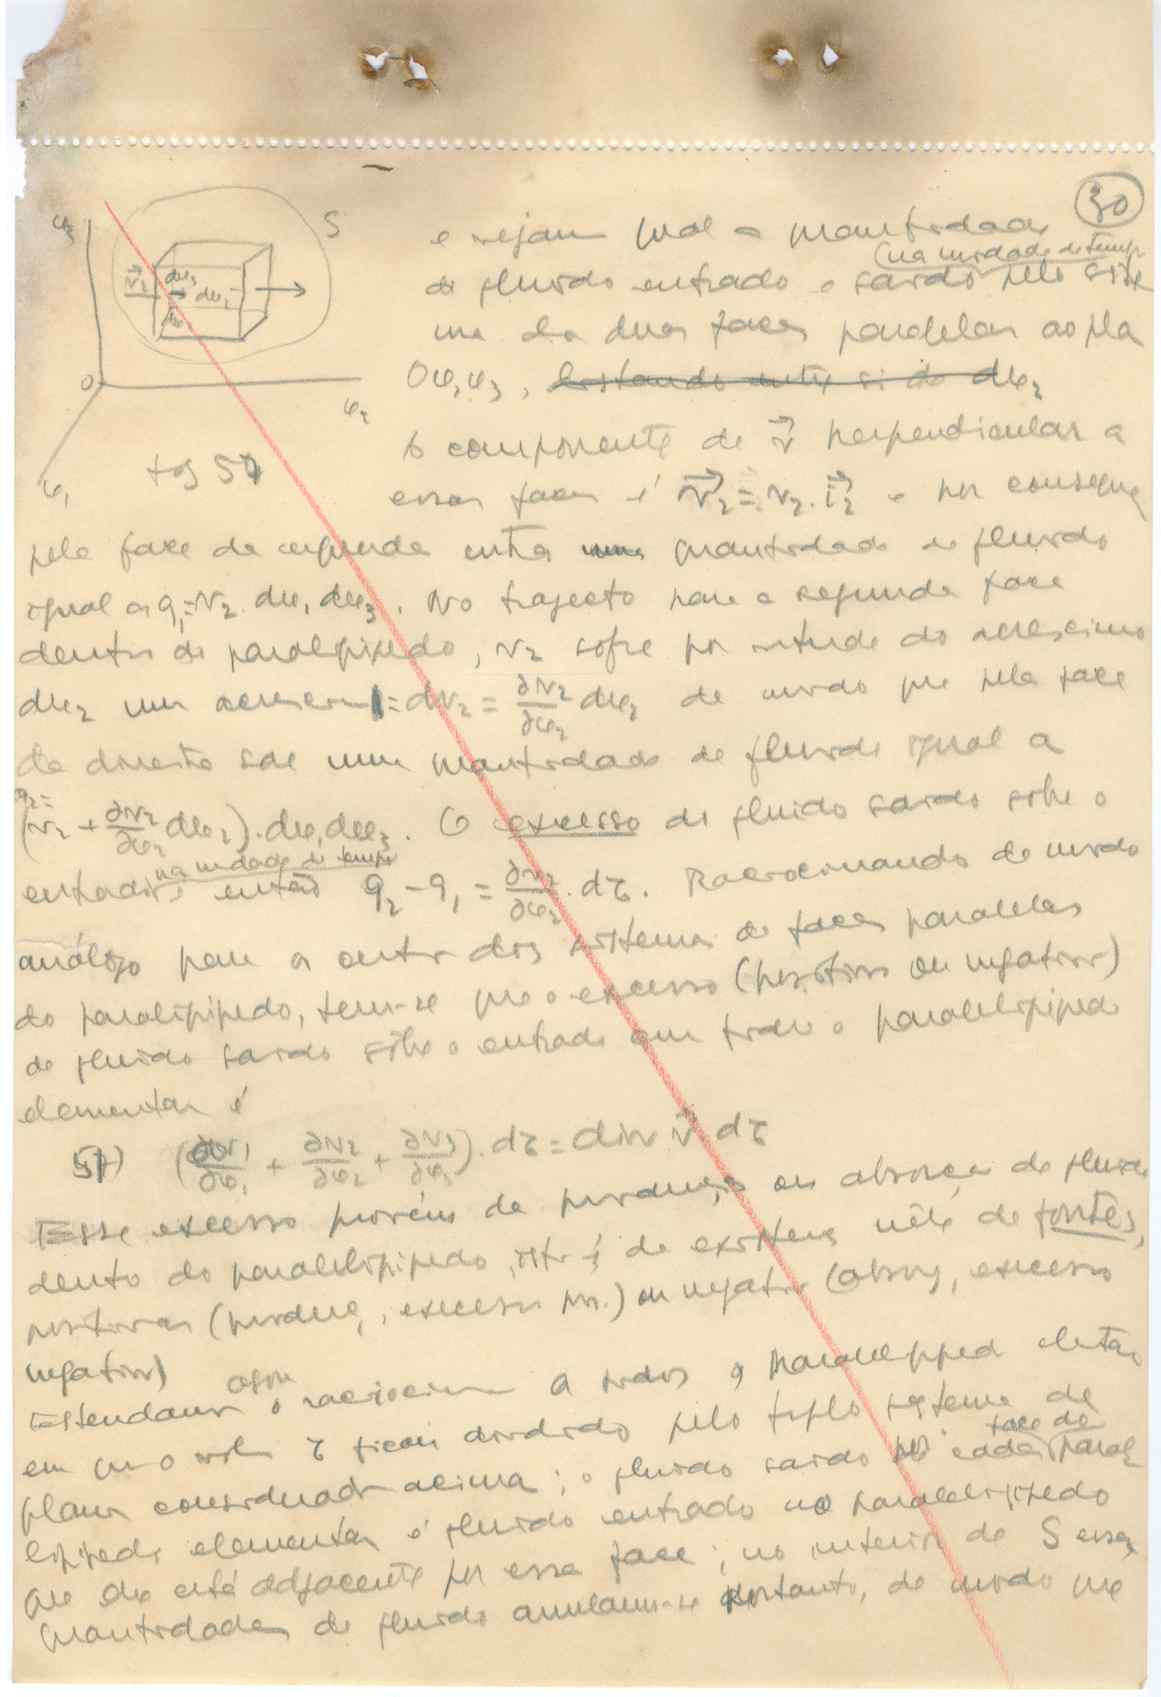 30
φ3
S
v⃗2 dφ3 dφ2
0
φ2
φ1
fig 57
e vejam qual a quantidade
(na unidade de tempo
de fluido entrado e saido pelo siste
ma das duas faces paralelas ao pla
Oφ1φ3, dφ2
A componente de v⃗ perpendicular a
essas faces é v⃗2 = v2. i⃗2 e por conseque
pela face da esquerda entra uma quantidade de fluido
igual a q1=v2. dφ1 dφ3. No trajecto para a segunda face
dentro do paralepipedo, v2 sofre por virtude do acrescimo
dφ2 um acrescimo = dv2 = ∂v2/∂φ2 dφ2 de modo que pela face
da direita sae uma quantidade de fluido igual a
q2=
(v2 + ∂v2/∂φ2 dφ2). dφ1 dφ3. O excesso de fluido saido sôbre o
na unidade de tempo
entrado é então q2 - q1 = ∂v2/∂φ2 . dτ. Raciocinando de modo
análogo para os outros dois sistemas de faces paralelas
do paralepipedo, tem-se que o excesso (positivo ou negativo)
de fluido saido sôbre o entrado em todo o paralelipipedo
elementar é
57) (∂v1/∂φ1 + ∂v2/∂φ2 + ∂v3/∂φ3). dτ = div v⃗ dτ
Esse excesso provém da produção ou absorção de fluido
dentro do paralelipipedo, isto é de existirem nêle de fontes,
positivas (produç, excesso pos.) ou negativas (absorç, excesso
negativo)
agora
Estendamos o raciocinio a todos os paralelipiped
em que o vol. τ ficou dividido pelo triplo sistema de
face de
planos coordenados acima; o fluido saido por cada paral
lipipedo elementar é fluido entrado no paralelipipedo
que lhe está adjacente por essa face; no interior de S essas
quantidades de fluido anulam-se portanto, de modo que